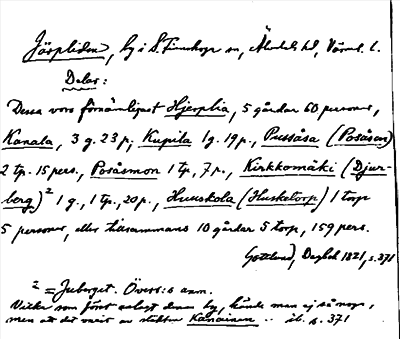 Järpliden, by i S. Finnskoga sn, Älvdals hd, Värml. l.
Delar:
Dessa voro förnämligast Hjerplia, 5 gårdar 60 personer,
Kanala, 3 g. 23 p, Kupila 1 g. 19 p., Pussåsa (Posåsen)
2 tp. 15 pers., Posåsmon 1 tp, 7 p., Kirkkomäki (Djur-
berg)² 1 g., 1 tp., 20 p., Huuskola (Husketorp) 1 torp
5 personer, eller tillsammans 10 gårdar 5 torp, 159 pers.
Gottlund, Dagbok 1821, s. 371
² = Juberget. Övers:s anm.
Vilka som först anlagt denna by, kände man ej så noga,
men att det varit av släkten Kanainen .. ib. s. 371